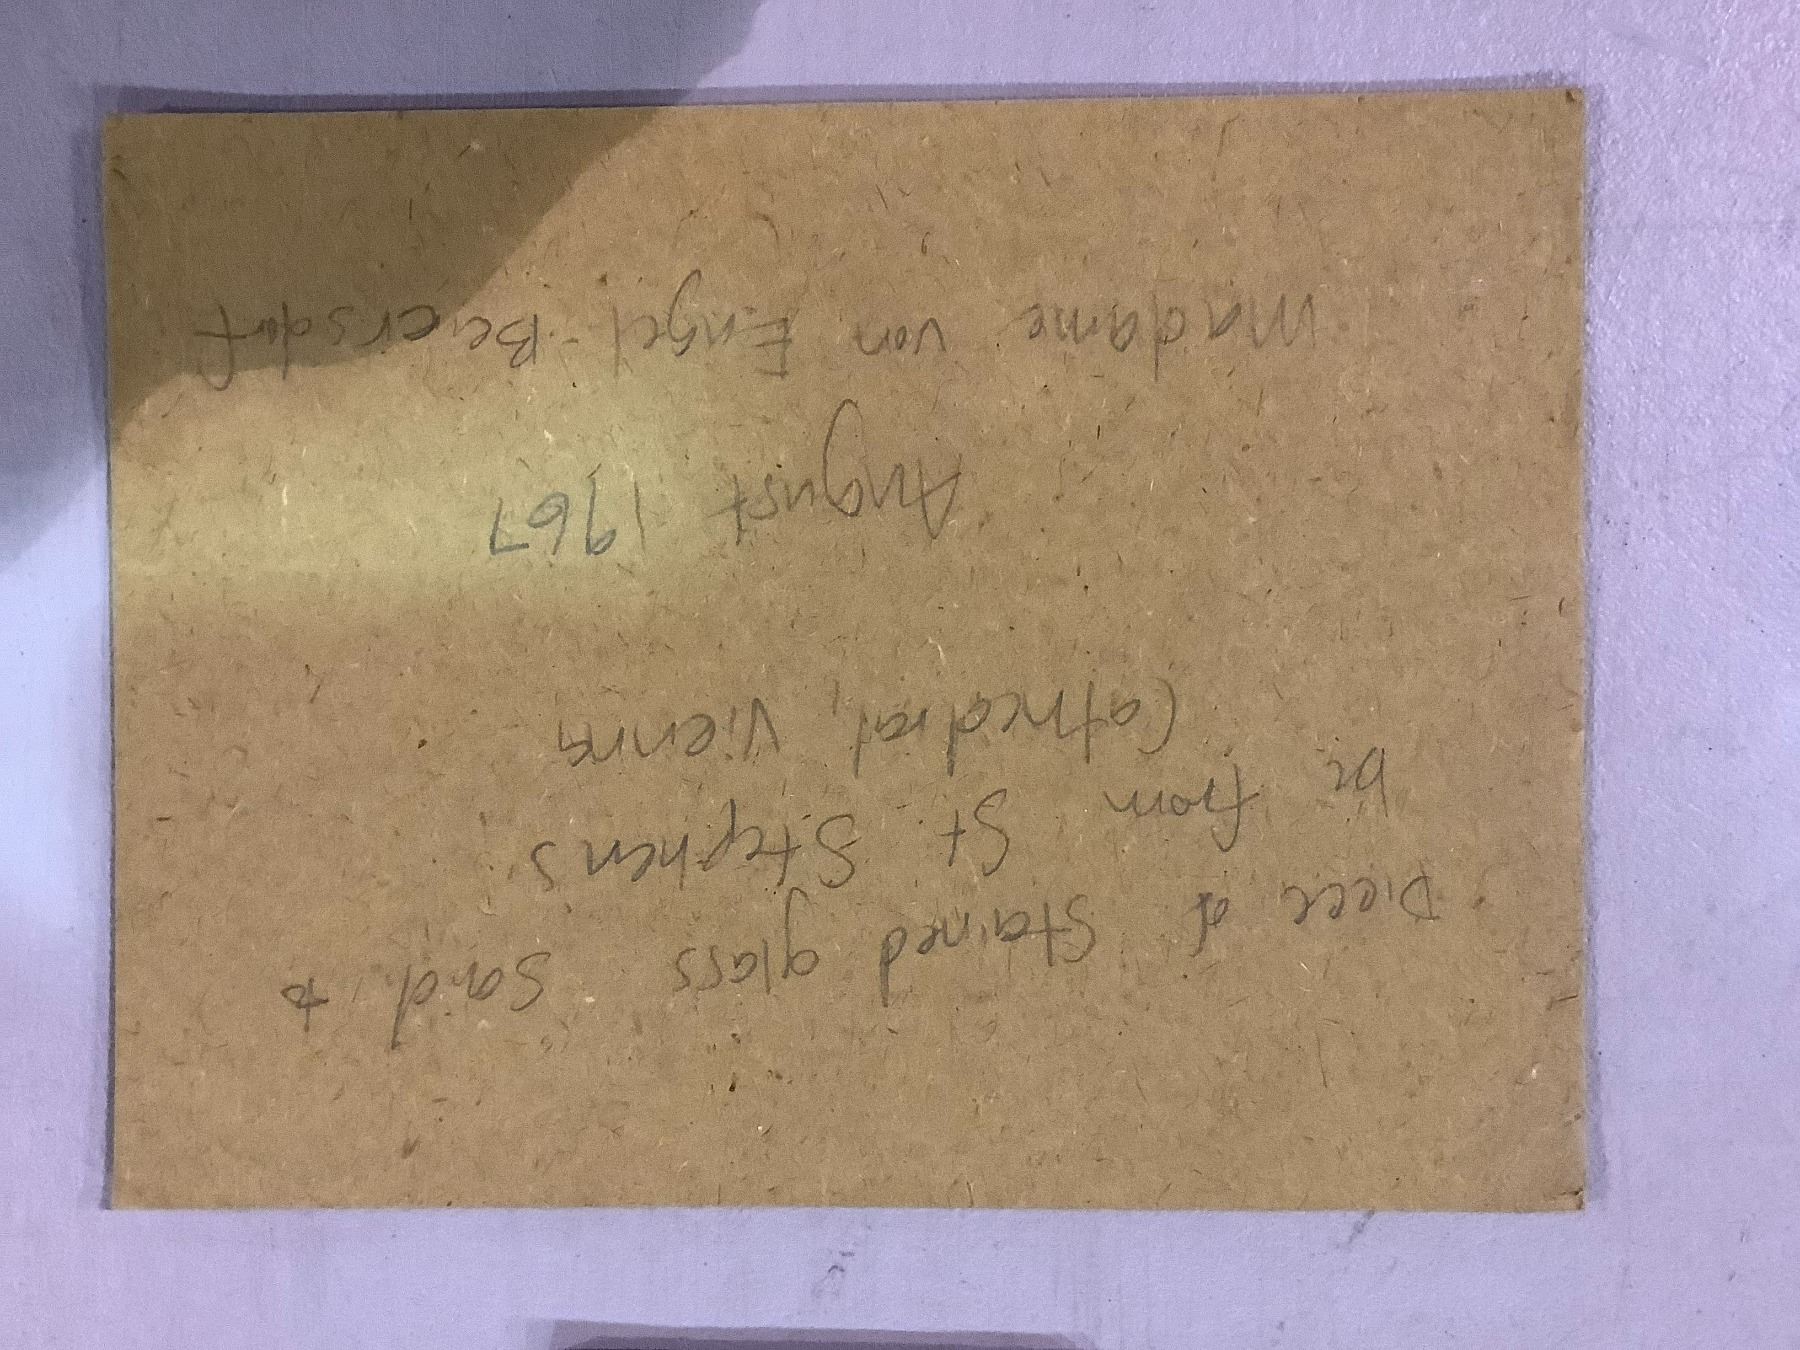 Piece of Stained glass Said to
be from St Stephens
Cathedral, Vienna
August 1967
Madame von Engel-Beiersdorf